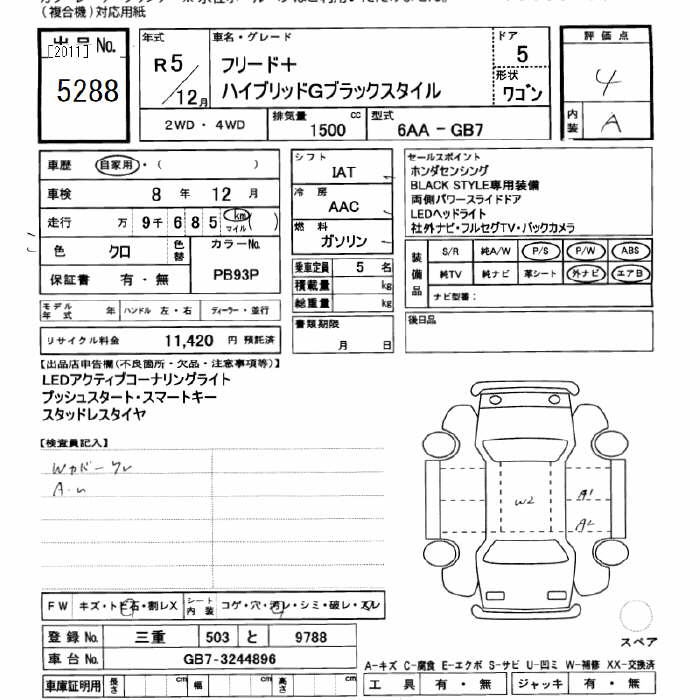 (複合機)対応用紙
出品No.
[2011]
5288
年式
R5/12月
車名・グレード
フリード＋
ハイブリッドGブラックスタイル
ドア
5
形状
ワゴン
評価点
4
内装
A
2WD・4WD
排気量
1500 cc
型式
6AA－GB7
車歴 自家用・( )
車検 8 年 12 月
走行 万 9千 6 8 5 km マイル ( )
色 クロ
色替
カラーNo.
PB93P
保証書 有・無
モデル年式 年 ハンドル 左・右 ディーラー・並行
リサイクル料金 11,420 円 預託済
シフト
IAT
冷房
AAC
燃料
ガソリン
乗車定員 5 名
積載量 kg
総重量 kg
書類期限
月 日
セールスポイント
ホンダセンシング
BLACK STYLE専用装備
両側パワースライドドア
LEDヘッドライト
社外ナビ・フルセグTV・バックカメラ
装備品
S/R 純A/W P/S P/W ABS
純TV 純ナビ 革シート 外ナビ エアB
ナビ型番：
後日品
【出品店申告欄(不良箇所・欠品・注意事項等)】
LEDアクティブコーナリングライト
プッシュスタート・スマートキー
スタッドレスタイヤ
【検査員記入】
W2
A1
A2
FW キズ・トビ石・割レX
シート内装 コゲ・穴・汚レ・シミ・破レ・スレ
登録No. 三重 503 と 9788
車台No. GB7-3244896
車庫証明用 長さ cm 幅 cm 高さ cm
スペア
A-キズ C-腐食 E-エクボ S-サビ U-凹ミ W-補修 XX-交換済
工具 有・無 ジャッキ 有・無